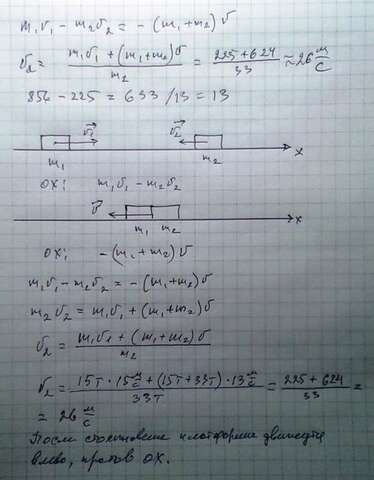 m₁v₁ - m₂v₂ = - (m₁+m₂) v
v₂ = (m₁v₁ + (m₁+m₂)v) / m₂ = (225+624) / 33 ≈ 26 м/с
856 - 225 = 633 /13 = 13
v₁ v₂
m₁ m₂ x
ох: m₁v₁ - m₂v₂
v
m₁ m₂ x
ох: -(m₁+m₂) v
m₁v₁ - m₂v₂ = -(m₁+m₂) v
m₂v₂ = m₁v₁ + (m₁+m₂) v
v₂ = (m₁v₁ + (m₁+m₂) v) / m₂
v₂ = (15т · 15 м/с + (15т + 33т) · 13 м/с) / 33т = (225 + 624) / 33 =
= 26 м/с
После платформы
влево, против ОХ.